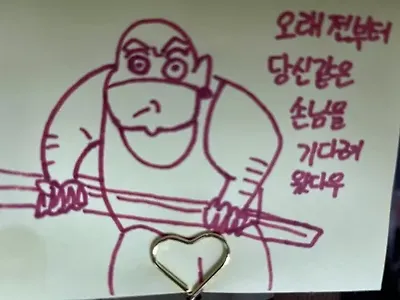 오래전부터
당신같은
손님을
기다려
왔다우